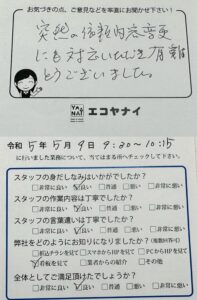 お気づきの点、ご意見などを率直にお聞かせ下さい!
突然の依頼内容変更
にも対応いただき有難
とうございました。
YANAT エコヤナイ
令和 5年 5月 9日 9:30~10:15
に行いました業務について、当てはまる所へチェックして下さい。
スタッフの身だしなみはいかがでしたか?
□非常に良い ☑良い □普通 □悪い □非常に悪い
スタッフの作業内容は丁寧でしたか?
□非常に良い ☑良い □普通 □悪い □非常に悪い
スタッフの言葉遣いは丁寧でしたか?
□非常に良い ☑良い □普通 □悪い □非常に悪い
弊社をどのようにお知りになりましたか?(複数回答可)
□折込チラシを見て □スマホからHPを見て □PCからHPを見て
☑看板を見て □業者からの紹介 □その他
全体としてご満足頂けたでしょうか?
□非常に良い ☑良い □普通 □悪い □非常に悪い